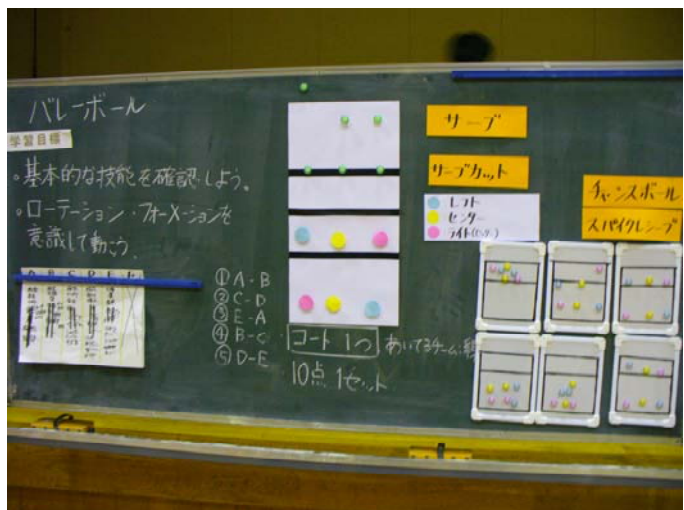 バレーボール
学習目標
・基本的な技能を確認しよう。
・ローテーション・フォーメーションを
意識して動こう。
A B C D E F
① A - B
② C - D
③ E - A
④ B - C
⑤ D - E
コート 1つ
あいてるチーム:
10点 1セット
サーブ
サーブカット
レフト
センター
ライト(セッター)
チャンスボール
スパイクレシーブ